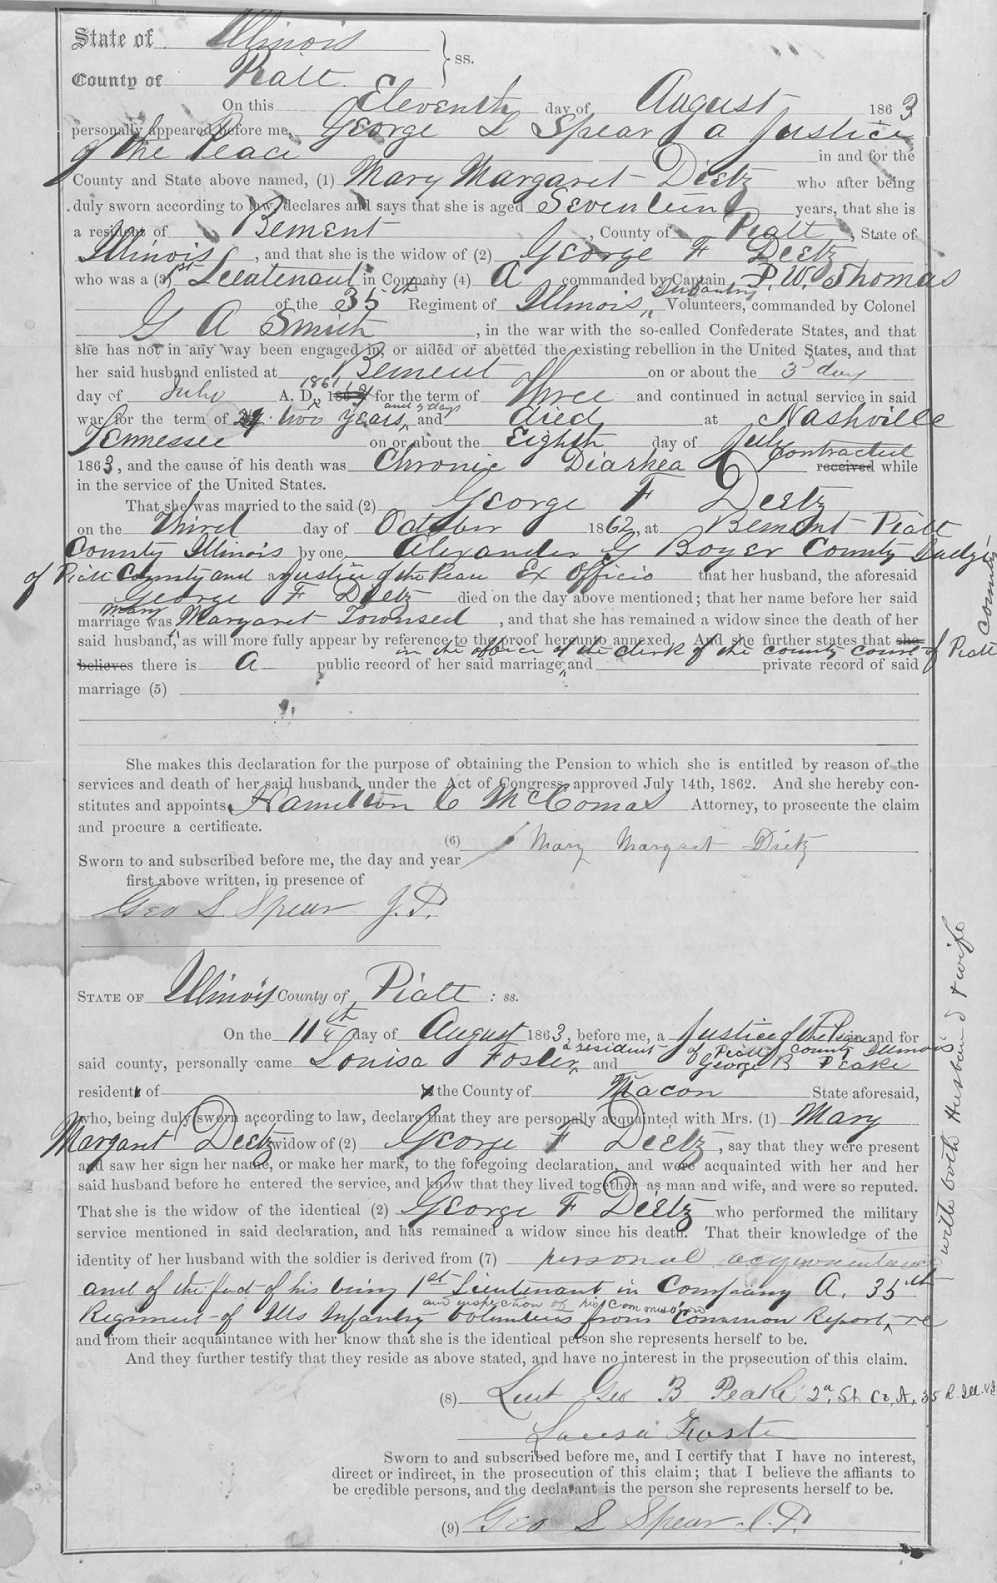 State of Illinois
County of Piatt } ss.
On this Eleventh day of August 1863
personally appeared before me, George S Spear a Justice
of the Peace in and for the
County and State above named, (1) Mary Margaret Dietz who after being
duly sworn according to law, declares and says that she is aged Seventeen years, that she is
a resident of Bement, County of Piatt, State of
Illinois, and that she is the widow of (2) George F Deetz
who was a (3) 1st Leeutenant in Company (4) A commanded by Captain P. W. Thomas
of the 35th Regiment of Illinois Infantry Volunteers, commanded by Colonel
G A Smith, in the war with the so-called Confederate States, and that
she has not in any way been engaged in, or aided or abetted the existing rebellion in the United States, and that
her said husband enlisted at Bement on or about the 3 day
day of July A. D., 1861 for the term of Three and continued in actual service in said
war for the term of two years and 5 days, and died at Nashville
Tennessee on or about the Eighth day of July
1863, and the cause of his death was Chronic Diarhea contracted received while
in the service of the United States.
That she was married to the said (2) George F Deetz
on the Third day of October 1862, at Bement Piatt
County Illinois by one Alexander G Boyer County Judge
of Piatt County and a Justice of the Peace Ex Officio that her husband, the aforesaid
George F Dietz died on the day above mentioned; that her name before her said
marriage was Mary Margaret Townsed, and that she has remained a widow since the death of her
said husband, as will more fully appear by reference to the proof hereunto annexed. And she further states that she
believes there is A public record of her said marriage in the office of the clerk of the county court of Piatt County and private record of said
marriage (5)
She makes this declaration for the purpose of obtaining the Pension to which she is entitled by reason of the
services and death of her said husband, under the Act of Congress, approved July 14th, 1862. And she hereby con-
stitutes and appoints Hamilton C McComas Attorney, to prosecute the claim
and procure a certificate.
(6) Mary Margret Dietz
Sworn to and subscribed before me, the day and year
first above written, in presence of
Geo S Spear J.P.
STATE OF Illinois County of Piatt : ss.
On the 11th day of August 1863, before me, a Justice of the Peace in and for
said county, personally came Louisa Foster a resident of Piatt County Illinois and George B Peake
resident of the County of Macon State aforesaid,
who, being duly sworn according to law, declare that they are personally acquainted with Mrs. (1) Mary
Margaret Deetz widow of (2) George F Deetz, say that they were present
and saw her sign her name, or make her mark, to the foregoing declaration, and were acquainted with her and her
said husband before he entered the service, and know that they lived together as man and wife, and were so reputed.
That she is the widow of the identical (2) George F Dietz who performed the military
service mentioned in said declaration, and has remained a widow since his death. That their knowledge of the
identity of her husband with the soldier is derived from (7) personal acquaintance with both Husband & wife
and of the fact of his being 1st Lieutenant in Company A. 35th
Regiment of Ills Infantry Volunteers from Common Report, and inspection of his Commission
and from their acquaintance with her know that she is the identical person she represents herself to be.
And they further testify that they reside as above stated, and have no interest in the prosecution of this claim.
(8) Leut Geo B Peake 2d. Co, A, 35 R. Ill. Vol
Louisa Foster
Sworn to and subscribed before me, and I certify that I have no interest,
direct or indirect, in the prosecution of this claim; that I believe the affiants to
be credible persons, and the declarant is the person she represents herself to be.
(9) Geo S Spear J.P.